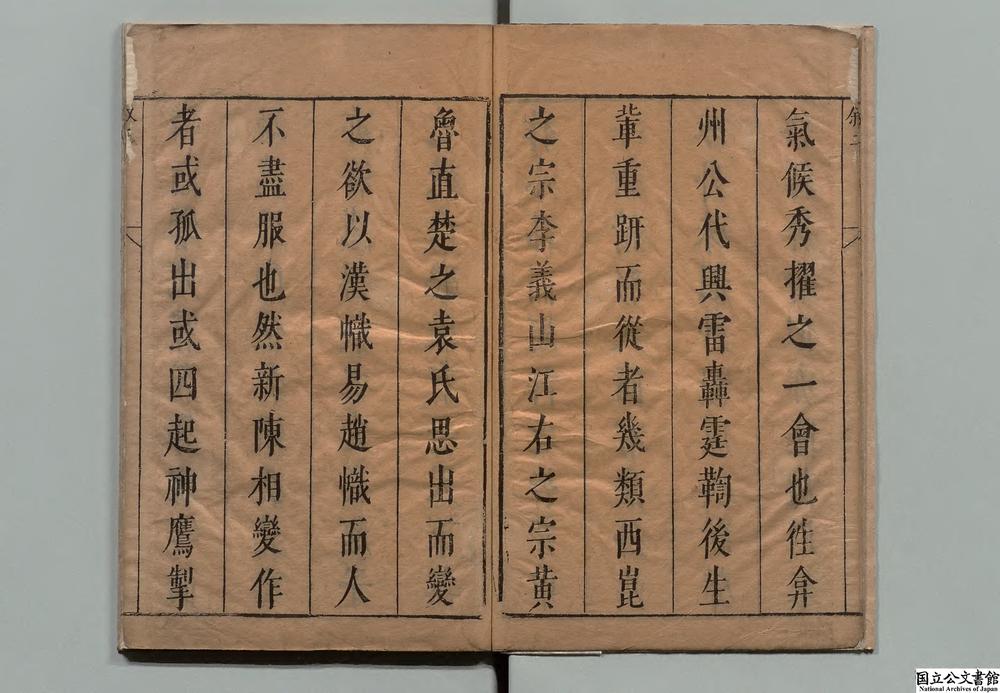 氣候秀擢之一會也徃弇
州公代興雷轟霆鞫後生
軰重趼而從者幾類西崑
之宗李義山江右之宗黃
魯直楚之袁氏思出而變
之欲以漢幟易趙幟而人
不盡服也然新陳相變作
者或孤出或四起神鷹掣
国立公文書館
National Archives of Japan